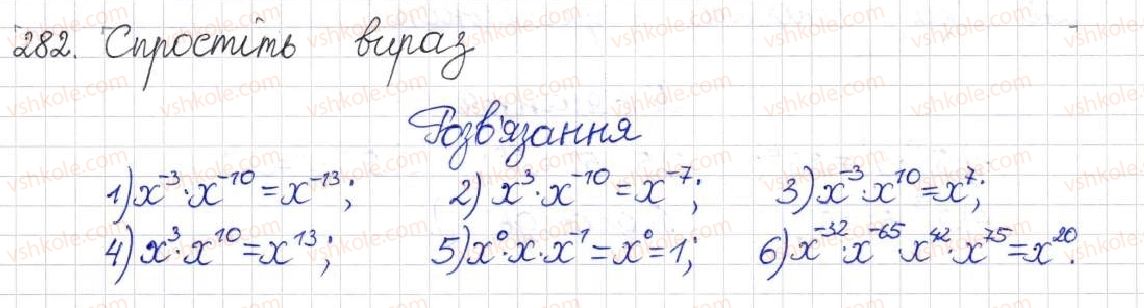 282. Спростіть вираз
Розв'язання
1) x⁻³·x⁻¹⁰=x⁻¹³; 2) x³·x⁻¹⁰=x⁻⁷; 3) x⁻³·x¹⁰=x⁷;
4) x³·x¹⁰=x¹³; 5) x⁰·x·x⁻¹=x⁰=1; 6) x⁻³²·x⁻⁶⁵·x⁴²·x⁷⁵=x²⁰.